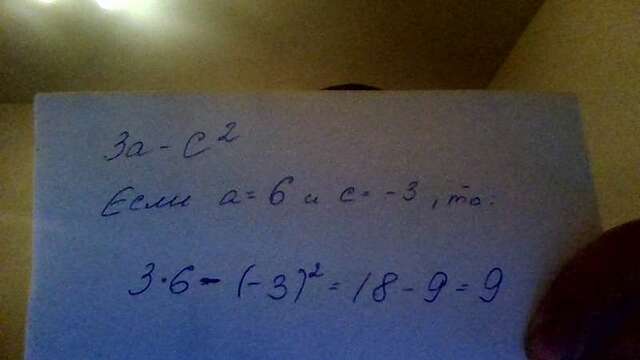 3a - c²
Если a = 6 и c = -3, то:
3·6 - (-3)² = 18 - 9 = 9